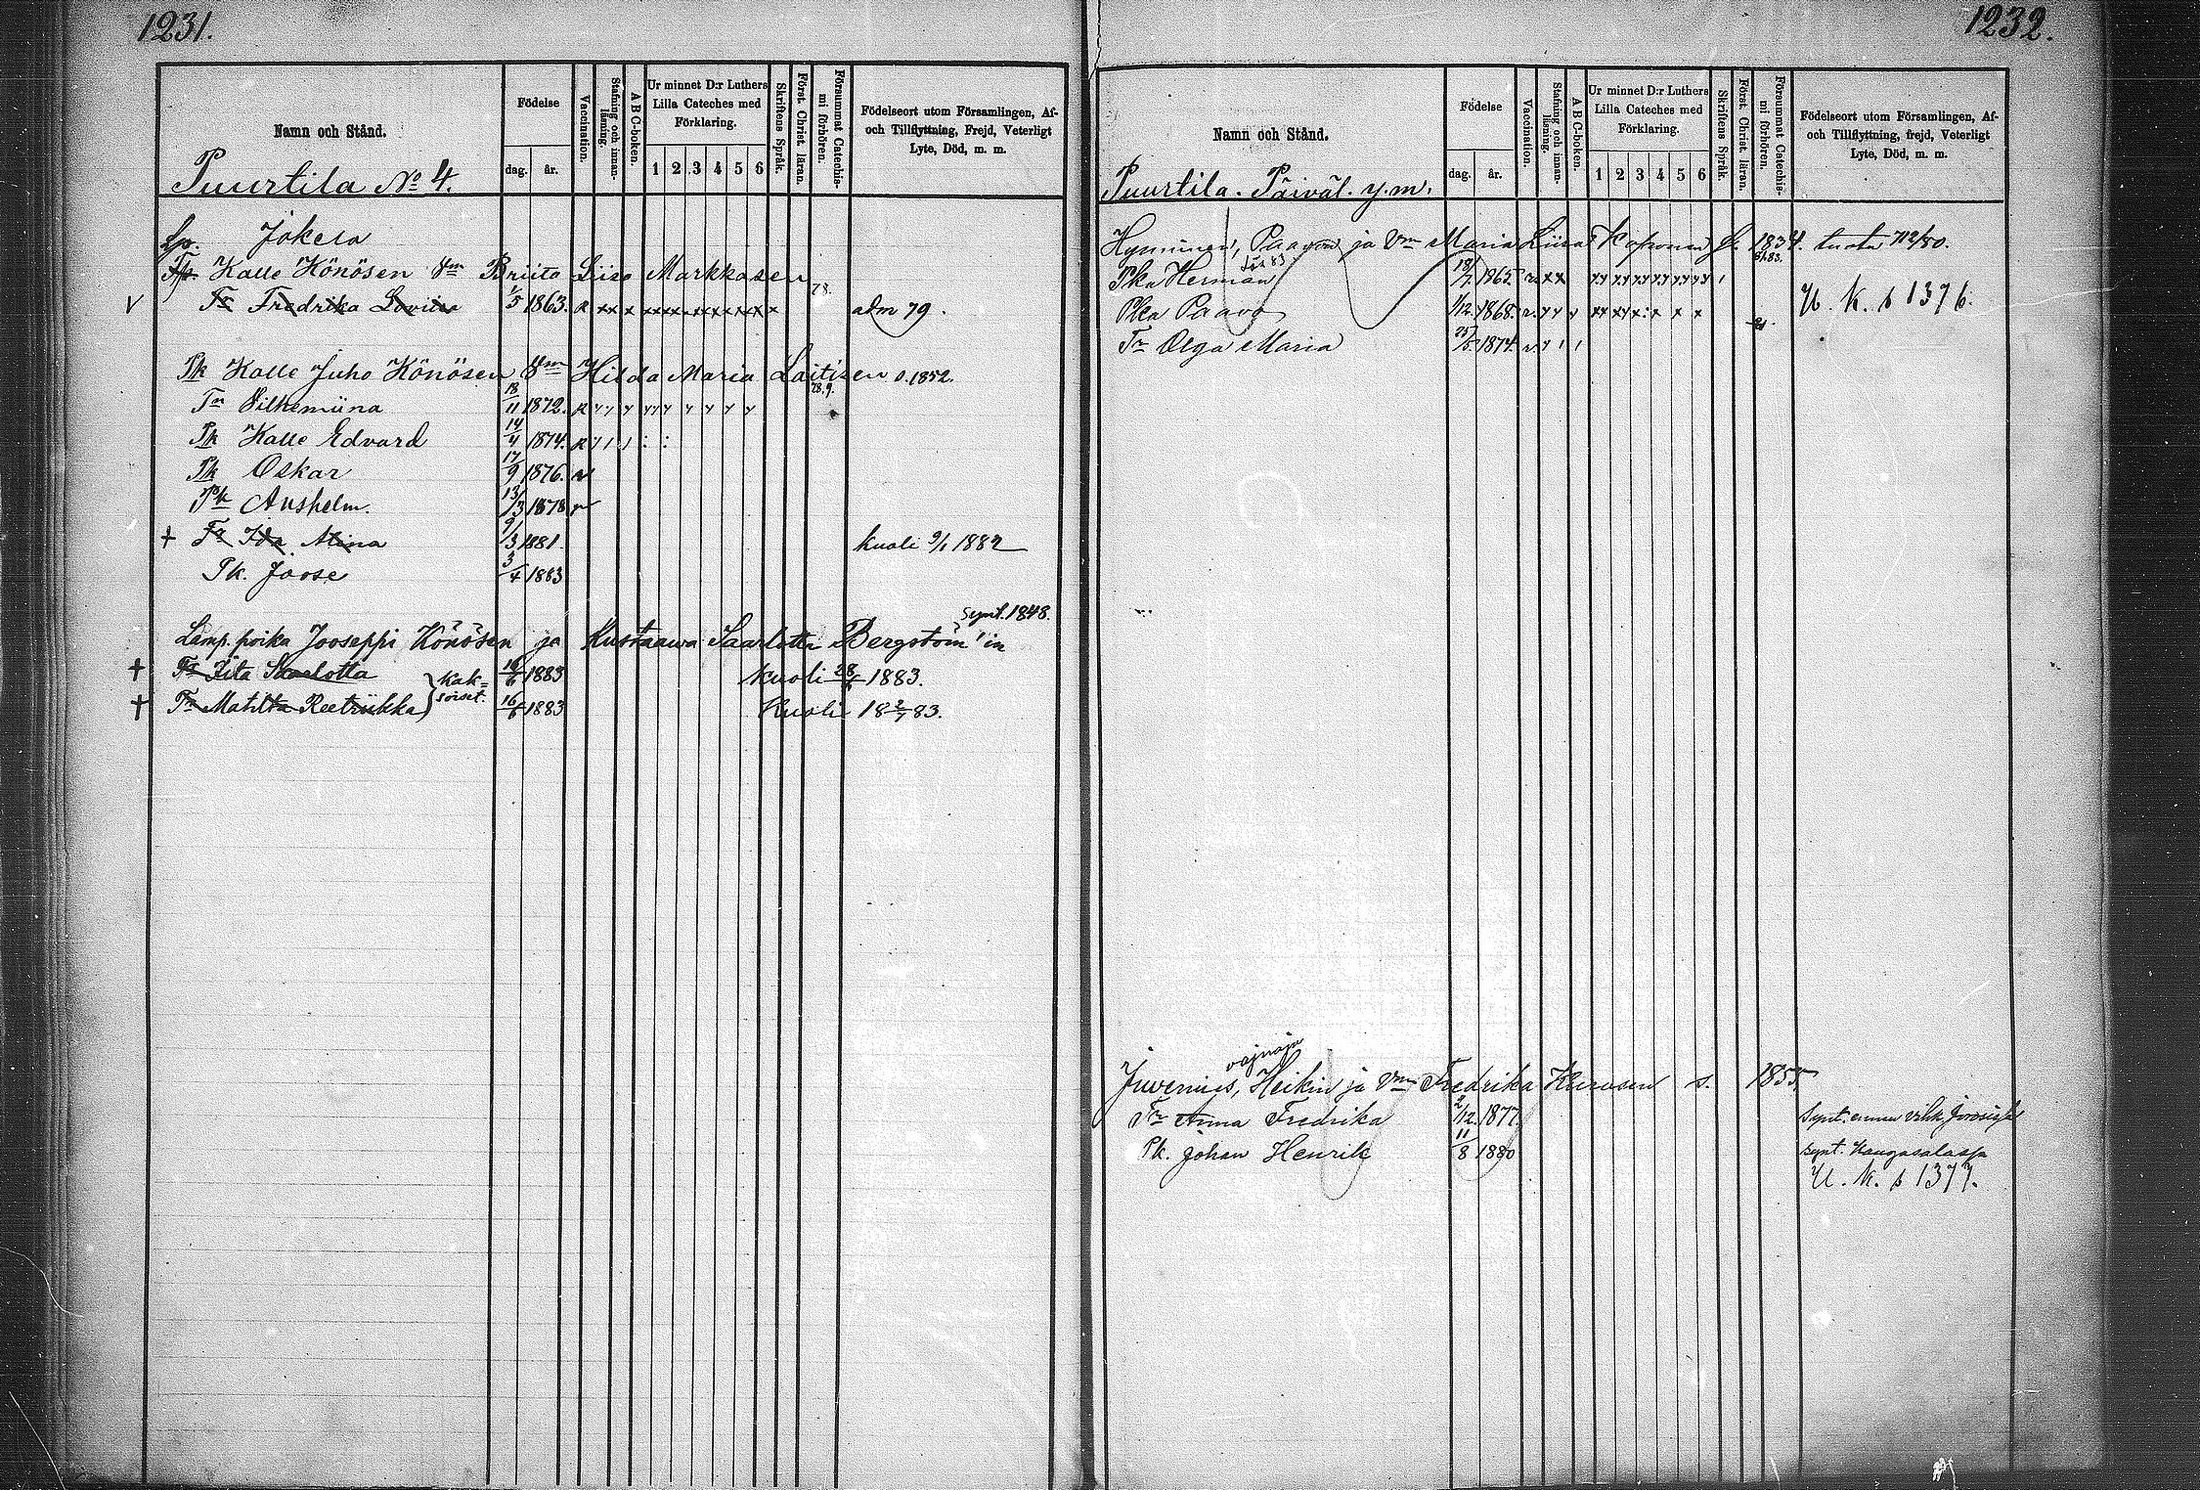 1231.
Namn och Stånd.
Födelse
dag.
år.
Vaccination.
Stafning och innan-läsning.
A B C-boken.
Ur minnet D:r Luthers
Lilla Cateches med
Förklaring.
1 2 3 4 5 6
Skriftens Språk.
Först. Christ. läran.
Försummat Catechis-
mi förhören.
Födelseort utom Församlingen, Af-
och Tillflyttning, Frejd, Veterligt
Lyte, Död, m. m.
Puurtila No 4.
Lp. Jokela
Kalle Könösen Vm Briita Liisa Markkasen
V Tr Fredrika Loviisa 1/5 1863. 78. adm 79.
Pk Kalle Juho Könösen Vm Hilda Maria Laitisen s. 1852.
Tr Vilhemiina 18/11 1872. 78.9.
Pk Kalle Edvard 14/4 1874.
Pk Oskar 17/9 1876.
Pk Anshelm. 13/3 1878
† Tr Ida Alina 9/3 1881. kuoli 9/1 1882
Pk. Joose 3/4 1883
synt. 1848.
Lamp. poika Jooseppi Könösen ja Kustaawa Saarlotta Bergström'in
† Tr Iita Saarlotta 16/6 1883 kuoli 1883.
† Tr Matilta Reetriikka 16/6 1883 Kuoli 18 2/7 83.
kak=
soiset.
1232.
Namn och Stånd.
Födelse
dag.
år.
Vaccination.
Stafning och innan-läsning.
A B C-boken.
Ur minnet D:r Luthers
Lilla Cateches med
Förklaring.
1 2 3 4 5 6
Skriftens Språk.
Först. Christ. läran.
Försummat Catechis-
mi förhören.
Födelseort utom Församlingen, Af-
och Tillflyttning, frejd, Veterligt
Lyte, Död, m. m.
Puurtila. Päiväl. y.m.
Hynninen, Paavo ja Vm Maria Liisa Kaponen 1834. 712/80.
Pka Herman 1865
Pka Paavo 1/12 1868.
U. K. s 1376.
Tr Olga Maria 25/5 1874.
Juvenius, Heikin ja Vm Fredrika Hurosen s. 1855,
Tr Anna Fredrika 2/12 1877.
Pk. Johan Henrik 11/8 1880 synt. Kangasalassa
U. K. s 1377.